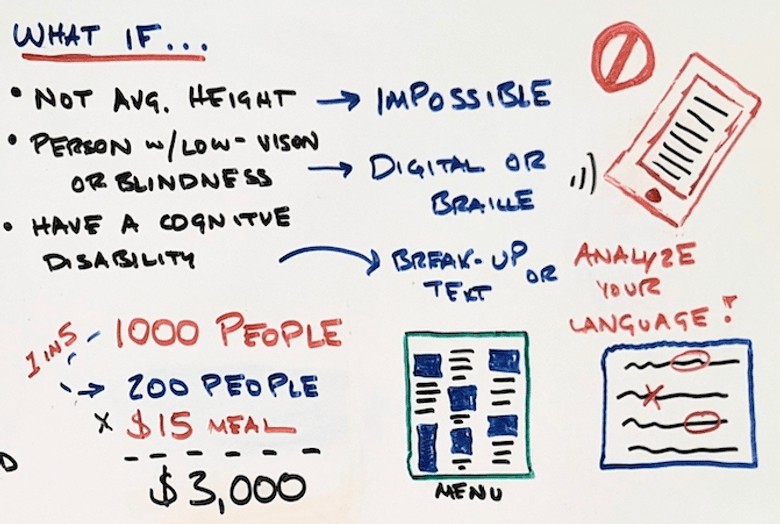 WHAT IF...
• NOT AVG. HEIGHT → IMPOSSIBLE
• PERSON W/LOW-VISON
OR BLINDNESS → DIGITAL OR
BRAILLE
• HAVE A COGNITVE
DISABILITY
BREAK-UP OR
TEXT
ANALYZE
YOUR
LANGUAGE!
1 IN 5
1000 PEOPLE
200 PEOPLE
X $15 MEAL
$3,000
MENU